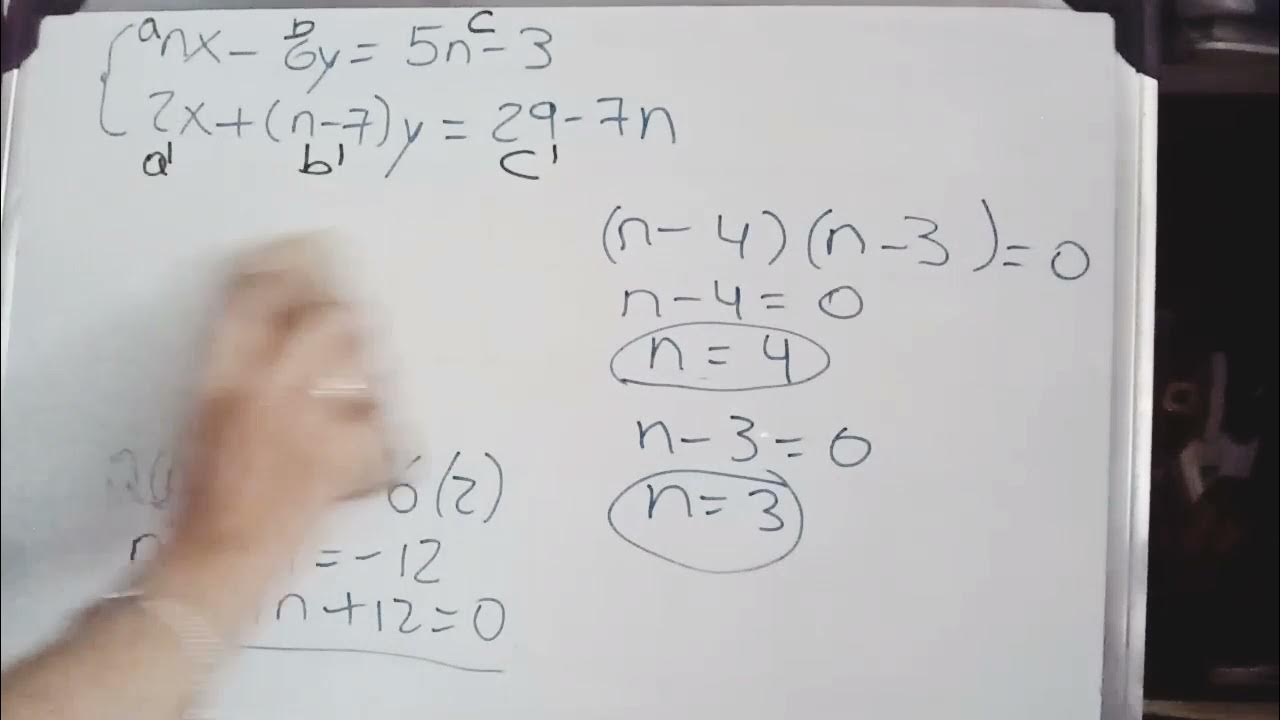 a b c
nx - 6y = 5n - 3
2x + (n - 7)y = 29 - 7n
a' b' c'
(n - 4)(n - 3) = 0
n - 4 = 0
n = 4
n - 3 = 0
n = 3
6(2)
= -12
n + 12 = 0